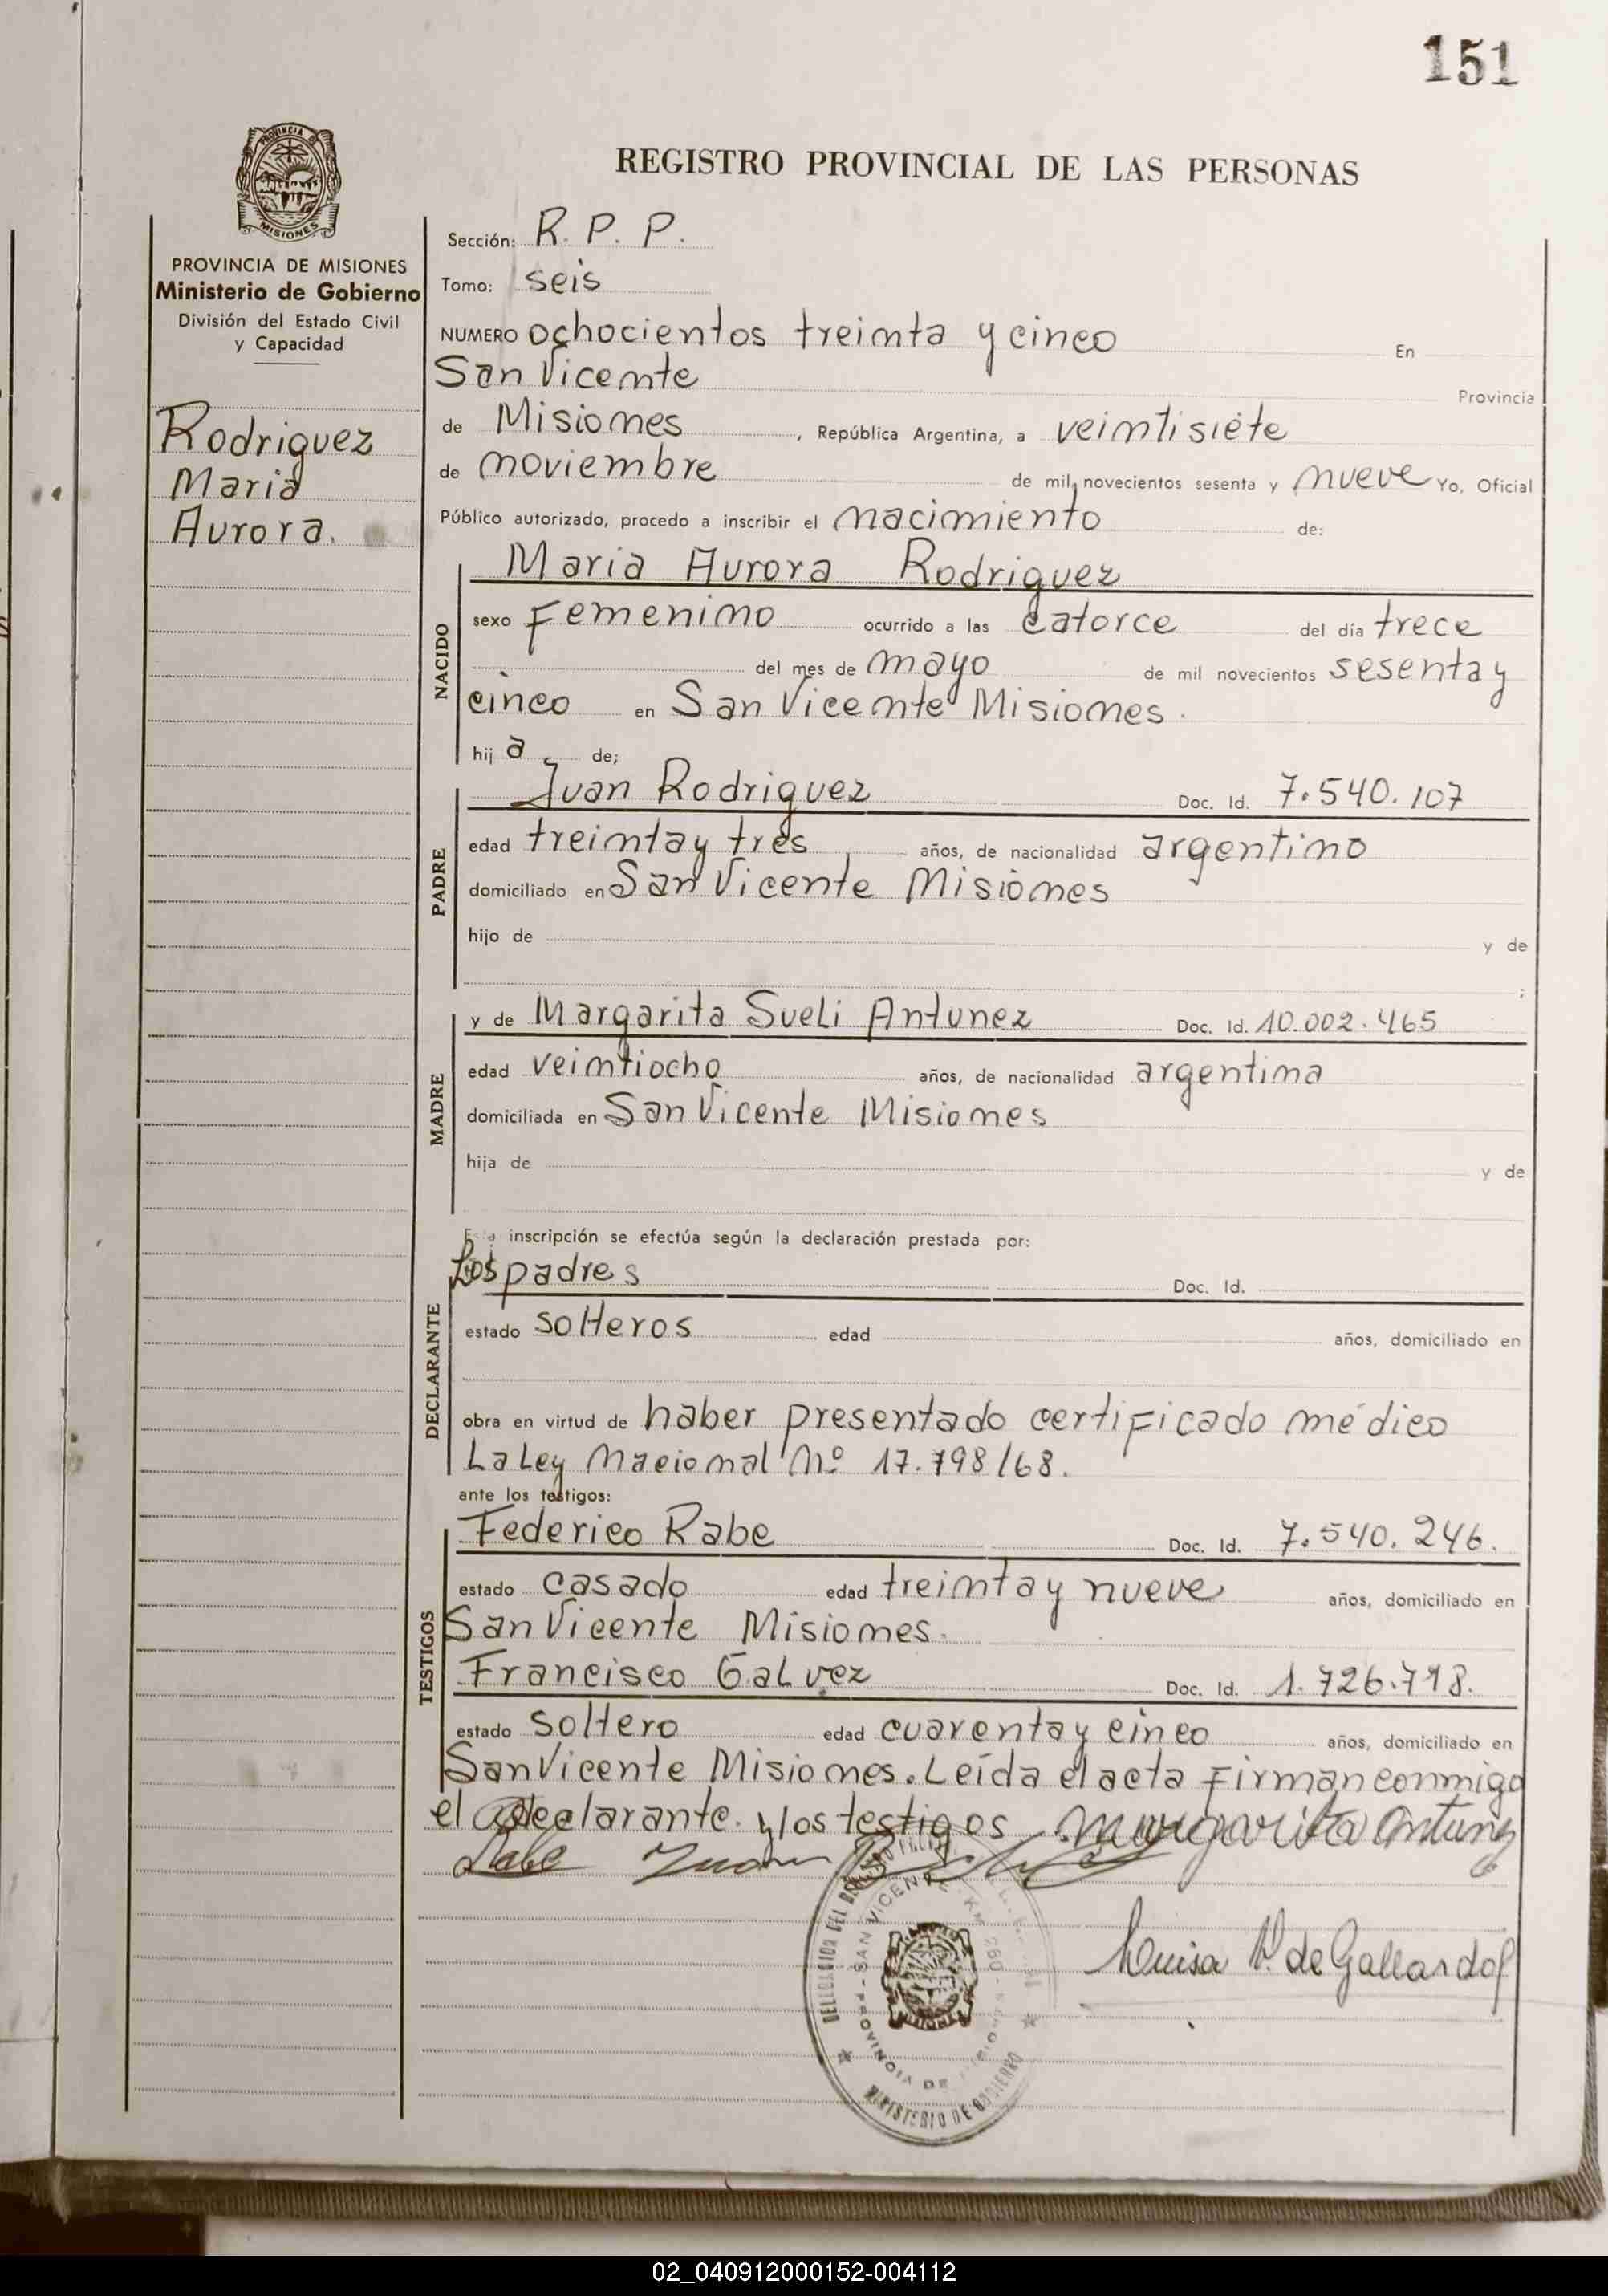 151
PROVINCIA DE
MISIONES
REGISTRO PROVINCIAL DE LAS PERSONAS
PROVINCIA DE MISIONES
Ministerio de Gobierno
División del Estado Civil
y Capacidad
Rodriguez
Maria
Aurora.
Sección: R. P. P.
Tomo: seis
NUMERO ochocientos treinta y cinco En
San Vicente Provincia
de Misiones, República Argentina, a veintisiete
de noviembre de mil novecientos sesenta y nueve Yo, Oficial
Público autorizado, procedo a inscribir el nacimiento de:
NACIDO
Maria Aurora Rodriguez
sexo Femenino ocurrido a las catorce del día trece
del mes de mayo de mil novecientos sesenta y
cinco en San Vicente Misiones.
hij a de;
PADRE
Juan Rodriguez Doc. Id. 7.540.107
edad treinta y tres años, de nacionalidad argentino
domiciliado en San Vicente Misiones
hijo de y de
;
MADRE
y de Margarita Sueli Antunez Doc. Id. 10.002.465
edad veintiocho años, de nacionalidad argentina
domiciliada en San Vicente Misiones
hija de y de
DECLARANTE
Esta inscripción se efectúa según la declaración prestada por:
Los padres Doc. Id.
estado solteros edad años, domiciliado en
obra en virtud de haber presentado certificado médico
La Ley Nacional Nº 17.798/68.
ante los testigos:
TESTIGOS
Federico Rabe Doc. Id. 7.540.246.
estado casado edad treinta y nueve años, domiciliado en
San Vicente Misiones.
Francisco Galvez Doc. Id. 1.726.798.
estado soltero edad cuarenta y cinco años, domiciliado en
San Vicente Misiones. Leída el acta Firman conmigo
el declarante. y los testigos Margarita Antunez
Rabe Juan
SAN VICENTE - KM 260
PROVINCIA DE MISIONES
MINISTERIO DE GOBIERNO
Luisa V. de Gallardo
02_040912000152-004112